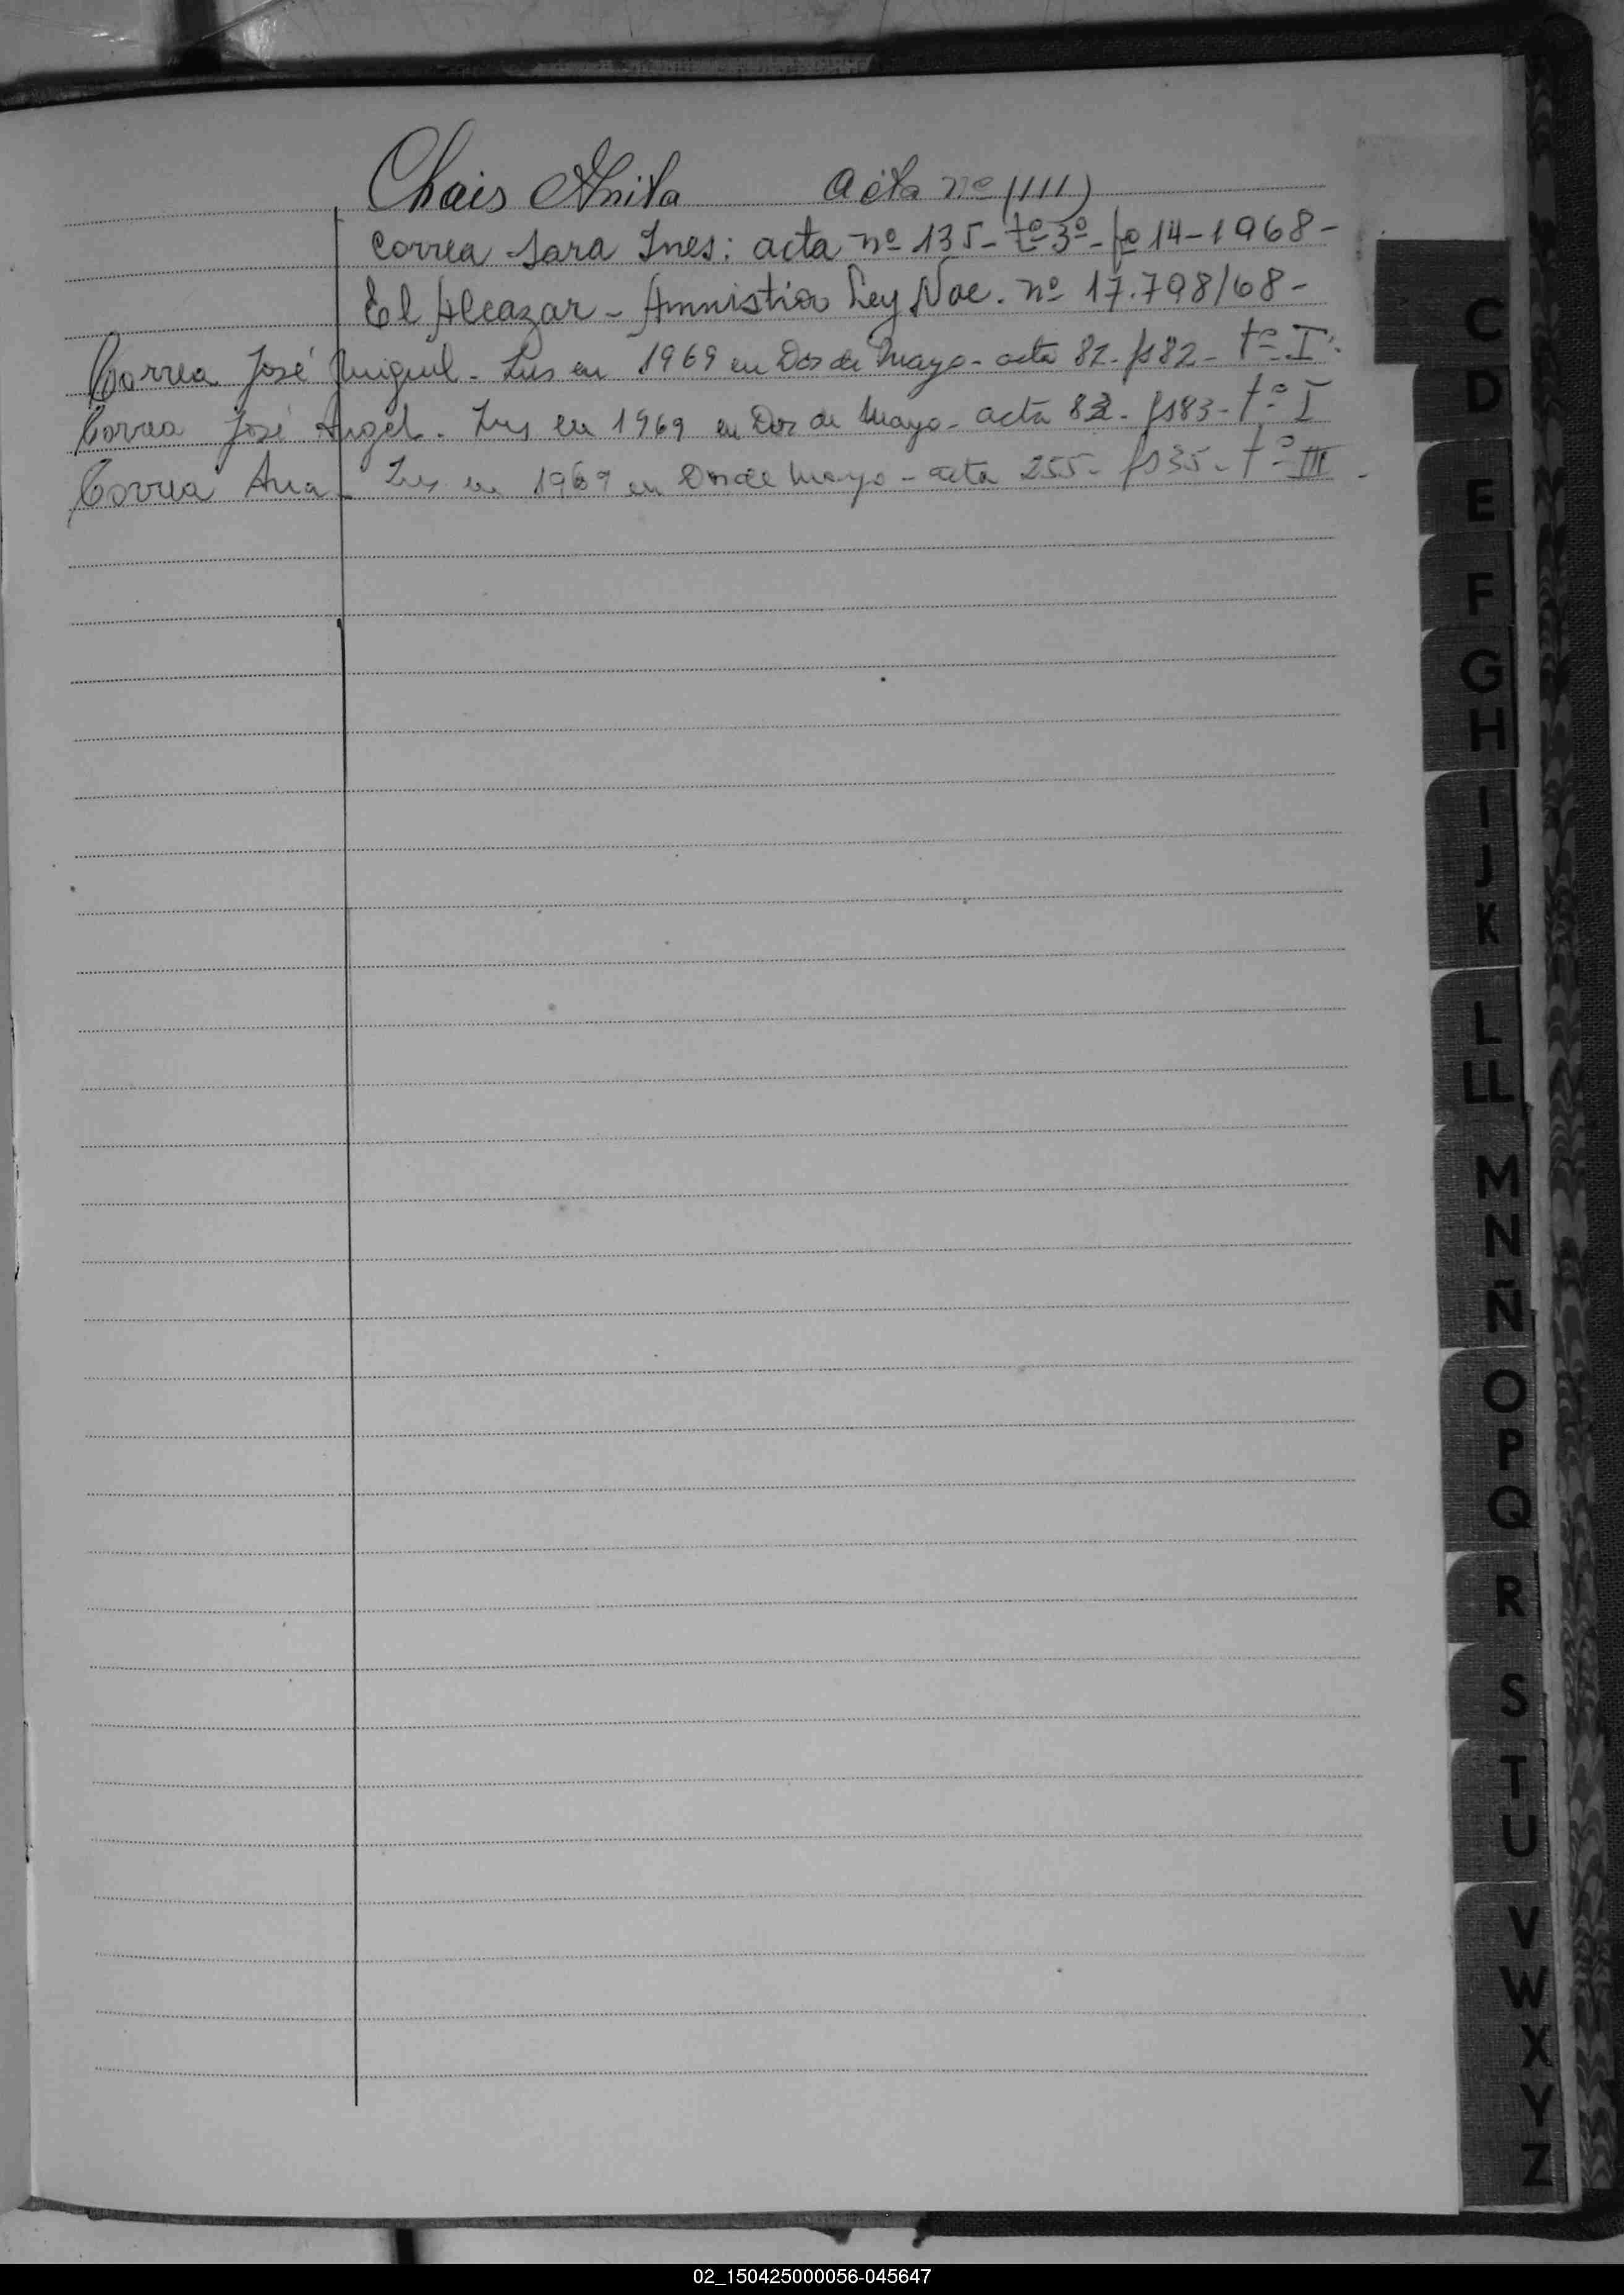 Chais Anita acta nº (1111)
Correa Sara Ines: acta nº 135- tº-3º- fº 14-1968-
El Alcazar - Amnistia Ley Nac. nº 17.798/68-
Correa José Miguel - Ins en 1969 en Dos de Mayo - acta 82- fs 82- tº I.
Correa José Angel - Ins en 1969 en Dos de Mayo - acta 83- fs 83- tº I
Correa Ana - Ins en 1969 en Dos de Mayo - acta 255- fs 35- tº III -
C
D
E
F
G
H
I
J
K
L
LL
M
N
Ñ
O
P
Q
R
S
T
U
V
W
X
Y
Z
02_150425000056-045647